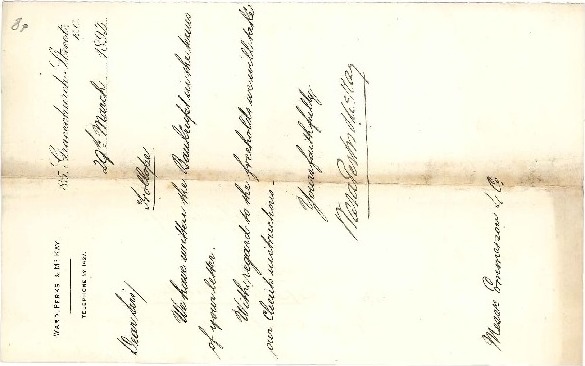 WARD, PERKS & McKAY
TELEPHONE Nº
85, Gracechurch Street,
E.C.
29th March 1893
Dear Sirs,
Trollope
We have written the Bankrupt in the terms
of your letter.
With regard to the freeholds we will take
our Clients instructions.
Yours faithfully
Ward Perks & McKay
Messrs &Co